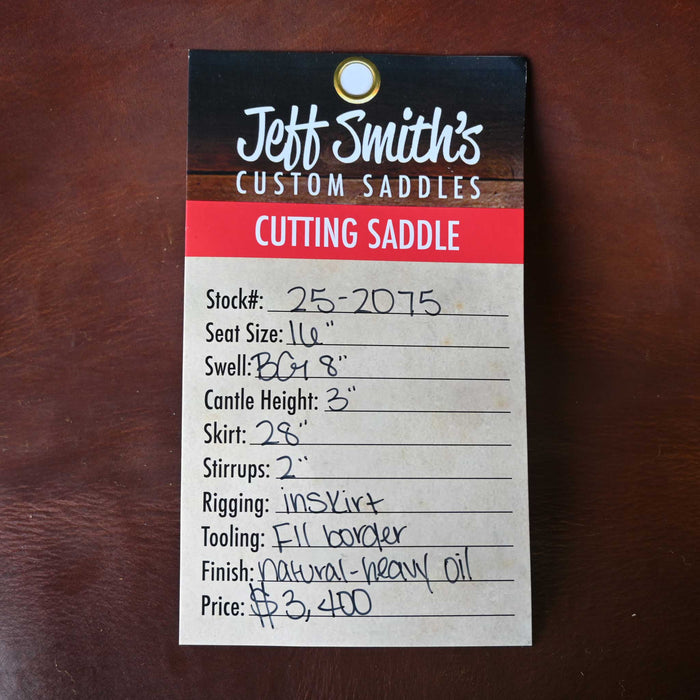 Jeff Smith's
CUSTOM SADDLES
CUTTING SADDLE
Stock#: 25-2075
Seat Size: 16"
Swell: BG 8"
Cantle Height: 3"
Skirt: 28"
Stirrups: 2"
Rigging: inskirt
Tooling: F11 border
Finish: natural-heavy oil
Price: $3,400